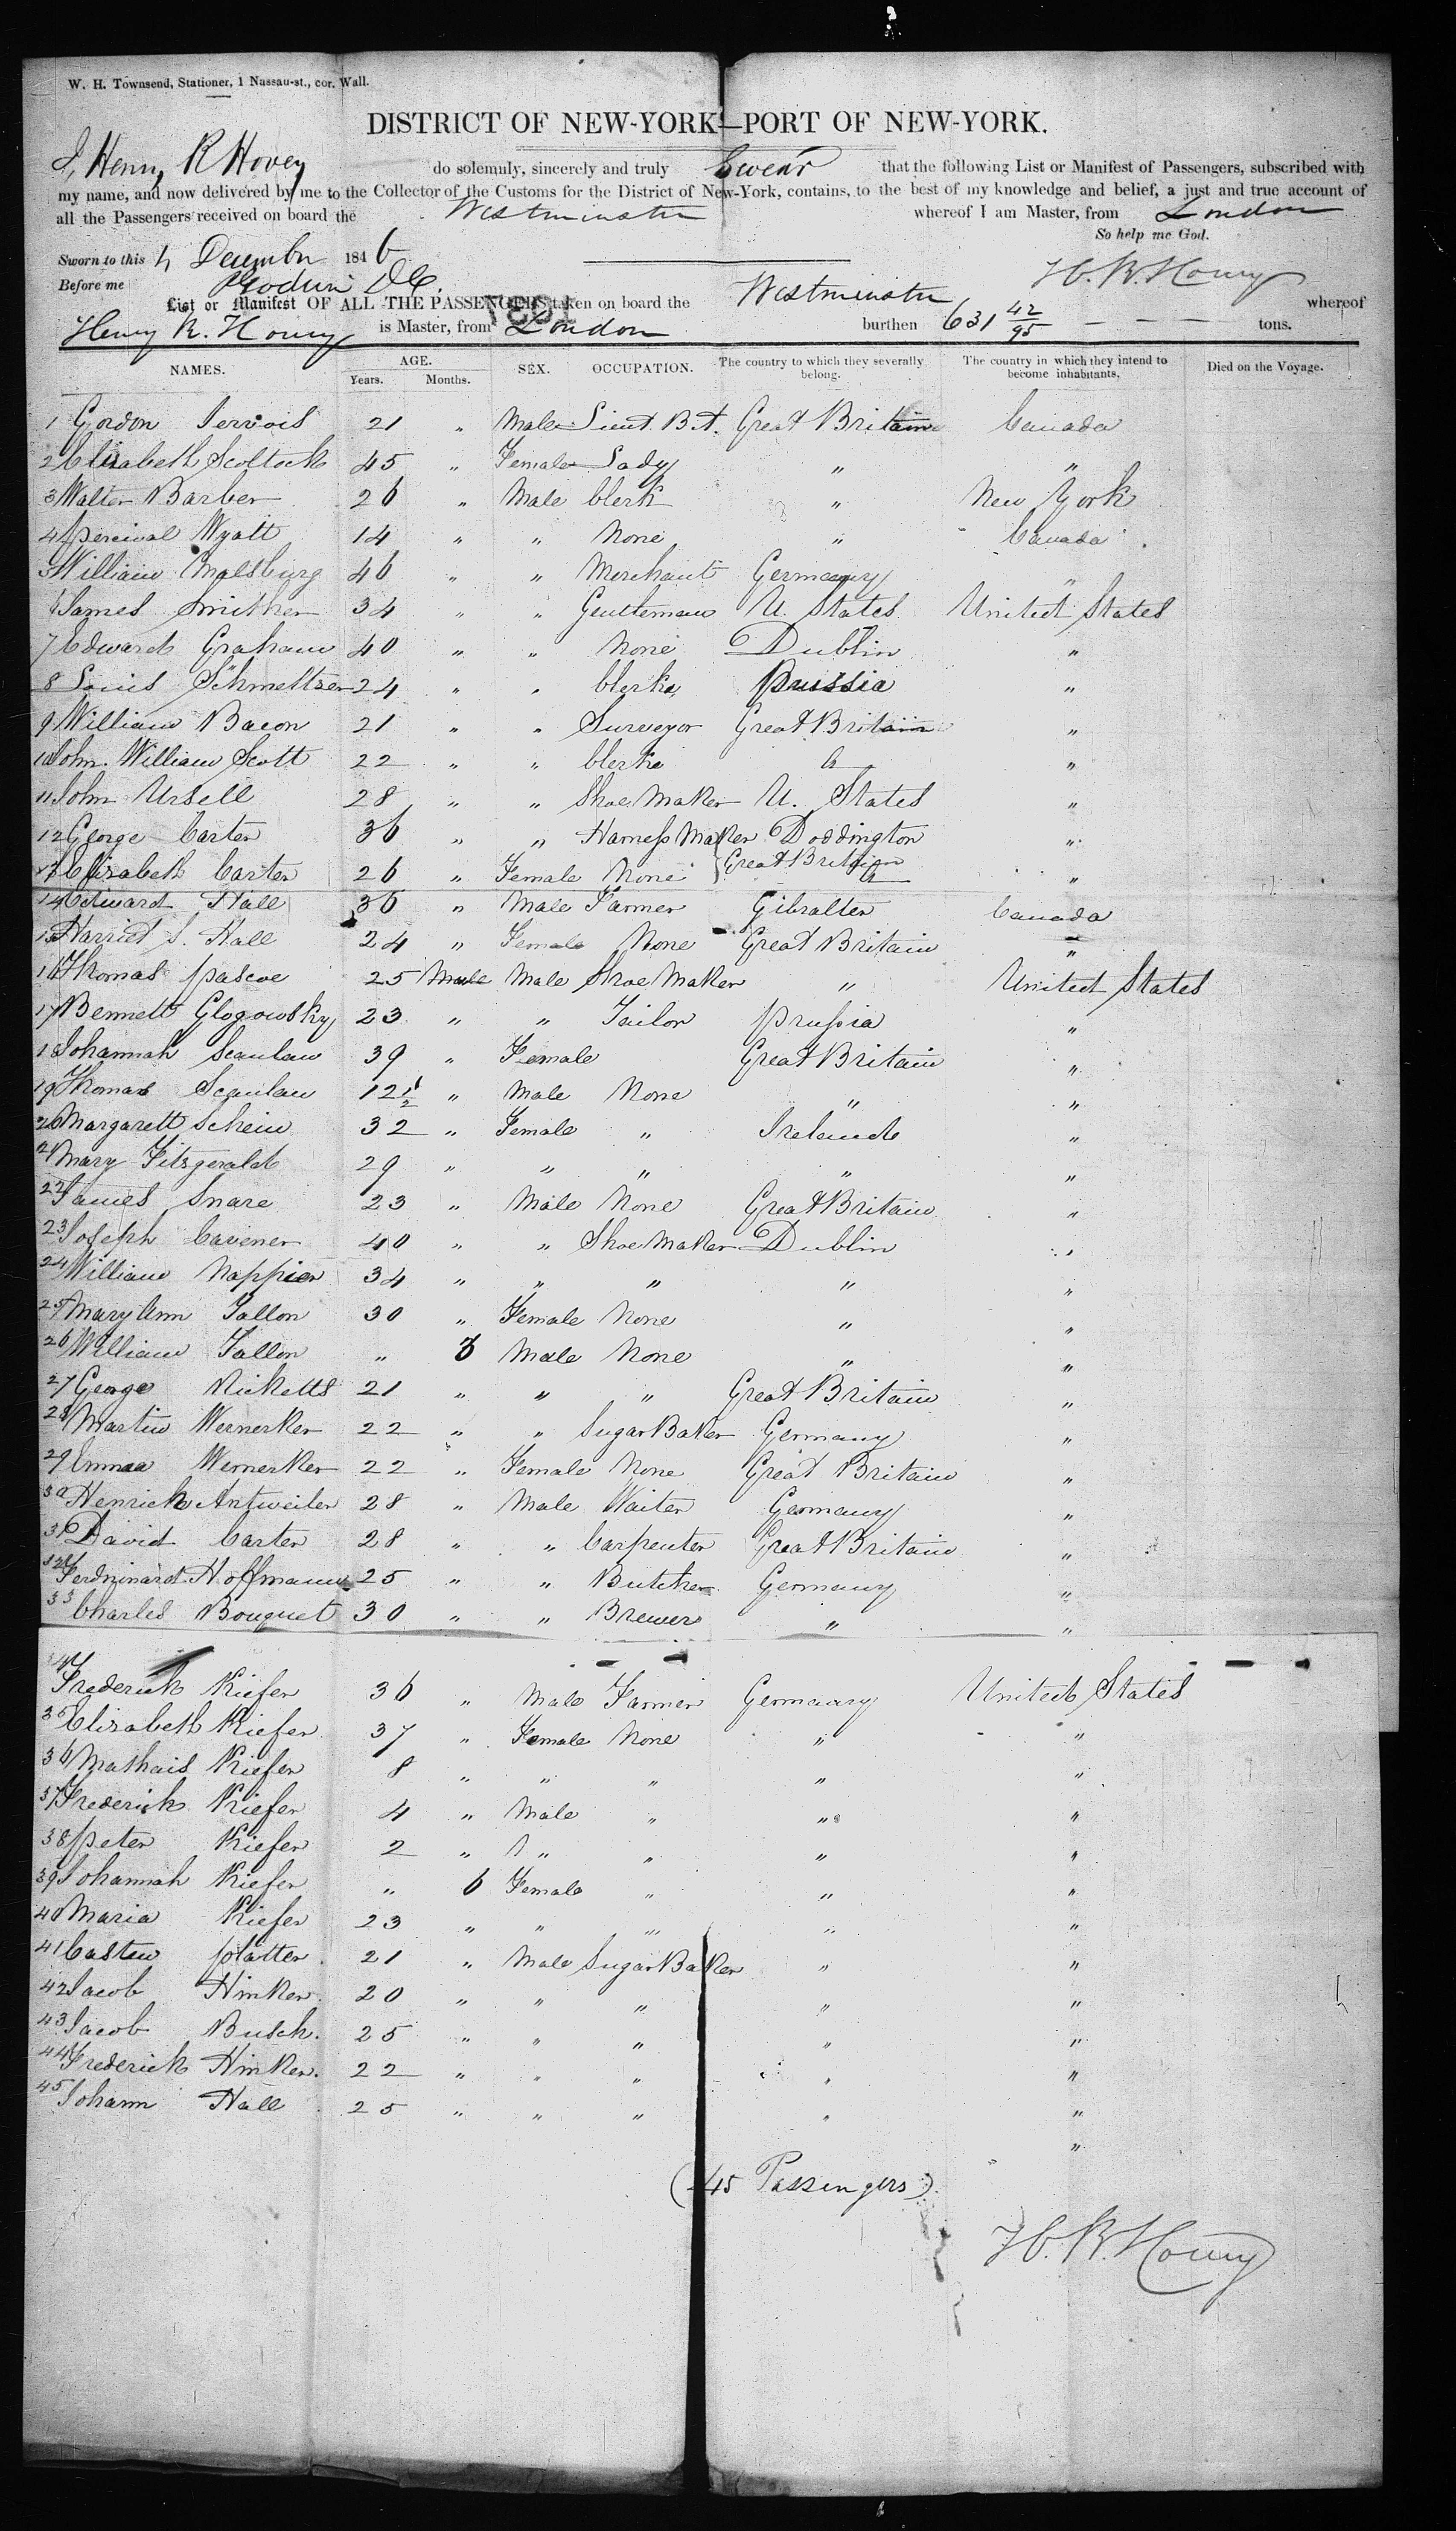 W. H. Townsend, Stationer, 1 Nassau-st., cor. Wall.
DISTRICT OF NEW-YORK—PORT OF NEW-YORK.
I, Henry R Hovey do solemnly, sincerely and truly Swear that the following List or Manifest of Passengers, subscribed with
my name, and now delivered by me to the Collector of the Customs for the District of New-York, contains, to the best of my knowledge and belief, a just and true account of
all the Passengers received on board the Westminster whereof I am Master, from London
So help me God.
Sworn to this 4 December 1846
Before me H. R. Hovey
List or Manifest OF ALL THE PASSENGERS taken on board the Westminster whereof
Henry R. Hovey is Master, from London burthen 631 42/95 — — — tons.
NAMES. AGE. SEX. OCCUPATION. The country to which they severally belong. The country in which they intend to become inhabitants. Died on the Voyage.
Years. Months.
1 Gordon Jervois 21 " Male Lieut. B.A. Great Britain Canada
2 Elizabeth Scoltock 45 " Female Lady " "
3 Walter Barber 26 " Male Clerk " New York
4 Percival Wyatt 14 " " None " Canada
5 William Malsburg 46 " " Merchant Germany "
6 James Smither 34 " " Gentleman U. States United States
7 Edward Graham 40 " " None Dublin "
8 Louis Schmeltzer 24 " " Clerk Prussia "
9 William Bacon 21 " " Surveyor Great Britain "
10 John William Scott 22 " " Clerk "
11 John Ursell 28 " " Shoe Maker U. States "
12 George Carter 36 " " Harness Maker Doddington "
13 Elizabeth Carter 26 " Female None Great Britain "
14 Edward Hall 36 " Male Farmer Gibralter Canada
15 Harriet S. Hall 24 " Female None Great Britain "
16 Thomas Pascoe 25 Male Male Shoe Maker " United States
17 Bennett Glogowsky 23 " " Tailor Prussia "
18 Johannah Scanlan 39 " Female Great Britain "
19 Thomas Scanlan 12 1/2 " Male None " "
20 Margarett Schein 32 " Female " Ireland "
21 Mary Fitzgerald 29 " " " " "
22 James Snare 23 " Male None Great Britain "
23 Joseph Cavener 40 " " Shoe Maker Dublin "
24 William Nappier 34 " " " " "
25 Mary Ann Fallon 30 " Female None " "
26 William Fallon " 3 Male None " "
27 George Ricketts 21 " " " Great Britain "
28 Martin Wernerker 22 " " Sugar Baker Germany "
29 Emma Wernerker 22 " Female None Great Britain "
30 Henrich Antweiler 28 " Male Waiter Germany "
31 David Carter 28 " " Carpenter Great Britain "
32 Ferdninard Hoffmann 25 " " Butcher Germany "
33 Charles Bouquet 30 " " Brewer " "
34 Frederick Kiefer 36 " Male Farmer Germany United States
35 Elizabeth Kiefer 37 " Female None " "
36 Mathais Kiefer 8 " " " " "
37 Frederick Kiefer 4 " Male " " "
38 Peter Kiefer 2 " " " " "
39 Johannah Kiefer " 6 Female " " "
40 Maria Kiefer 23 " " " " "
41 Casten Platter 21 " Male Sugar Baker " "
42 Jacob Hinker 20 " " " " "
43 Jacob Busch. 25 " " " " "
44 Frederick Hinker. 22 " " " " "
45 Johann Hall 25 " " " " "
"
(45 Passengers)
H. R. Hovey